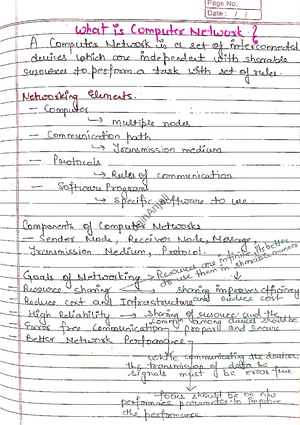 Page No.
Date : / /
What is Computer Network ?
A Computer Network is a set of interconnected
devices which are independent with sharable
resources to perform a task with set of rules.
Networking Elements.
— Computer
↳ Multiple nodes
— Communication path
↳ Transmission medium
— Protocols
↳ Rules of communication
— Software Program
↳ Specific software to use.
Components of Computer Networks
— Sender Node, Receiver Node, Message,
Transmission Medium, Protocol.
Goals of Networking
Resources are infinite its better
to use them in sharable manner
Resource sharing
sharing improves efficiency
and reduce cost
Reduce cost and Infrastructure
High Reliability → sharing of resource and the
common among devices should be
Error free Communication propery and secure
Better Network Performance
While communicating the devices,
the transmission of data &
signals must be error free
focus should be on
performance parameter to improve
the performance.